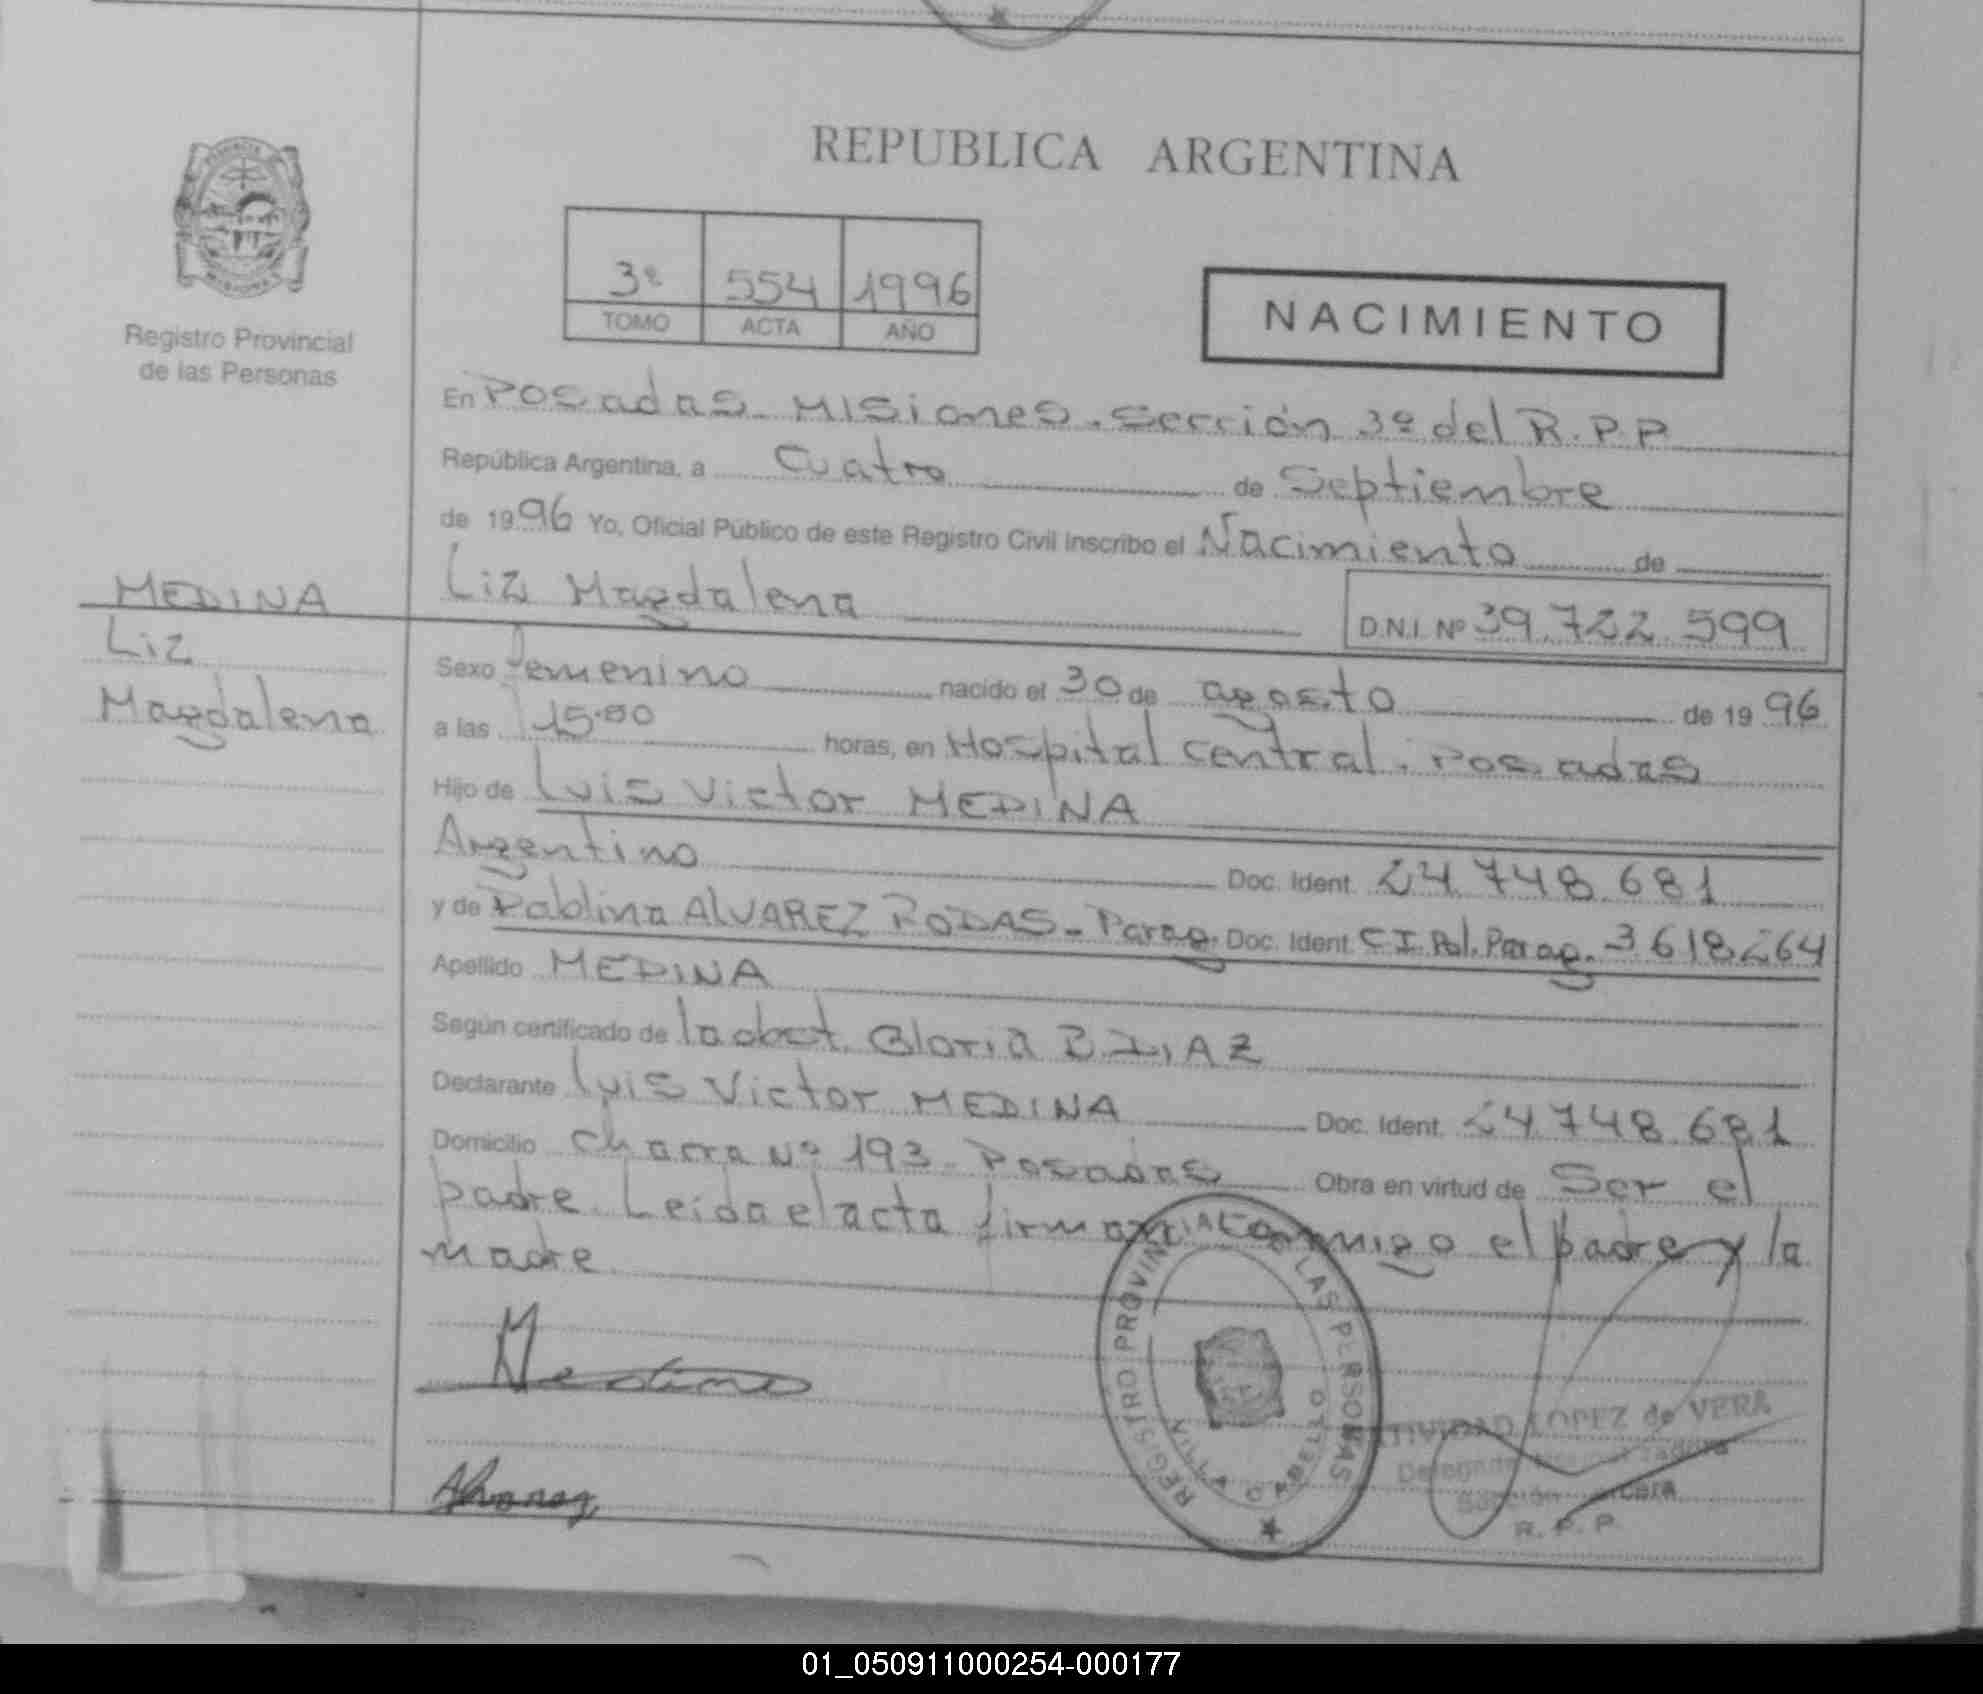 REPUBLICA ARGENTINA
3º 554 1996
TOMO ACTA AÑO
NACIMIENTO
Registro Provincial
de las Personas
En Posadas Misiones. Sección 3º del R.P.P
República Argentina, a Cuatro de Septiembre
de 1996 Yo, Oficial Público de este Registro Civil inscribo el Nacimiento de
Liz Magdalena
D.N.I. Nº 39.722.599
MEDINA
Liz
Magdalena
Sexo femenino nacido el 30 de agosto de 1996
a las 15.00 horas, en Hospital Central. Posadas
Hijo de Luis Victor MEDINA
Argentino Doc. Ident. 24.748.681
y de Pablina ALVAREZ RODAS - Parag. Doc. Ident. C.I. Pol. Parag. 3618264
Apellido MEDINA
Según certificado de la obst. Gloria B. DIAZ
Declarante Luis Victor MEDINA Doc. Ident. 24.748.681
Domicilio Chacra Nº 193 - Posadas Obra en virtud de Ser el
padre. Leida el acta firman conmigo el padre y la
madre
Medina
Alvarez
REGISTRO PROVINCIAL LAS PERSONAS
VILLA CABELLO
LOPEZ de VERA
R. P. P.
01_050911000254-000177